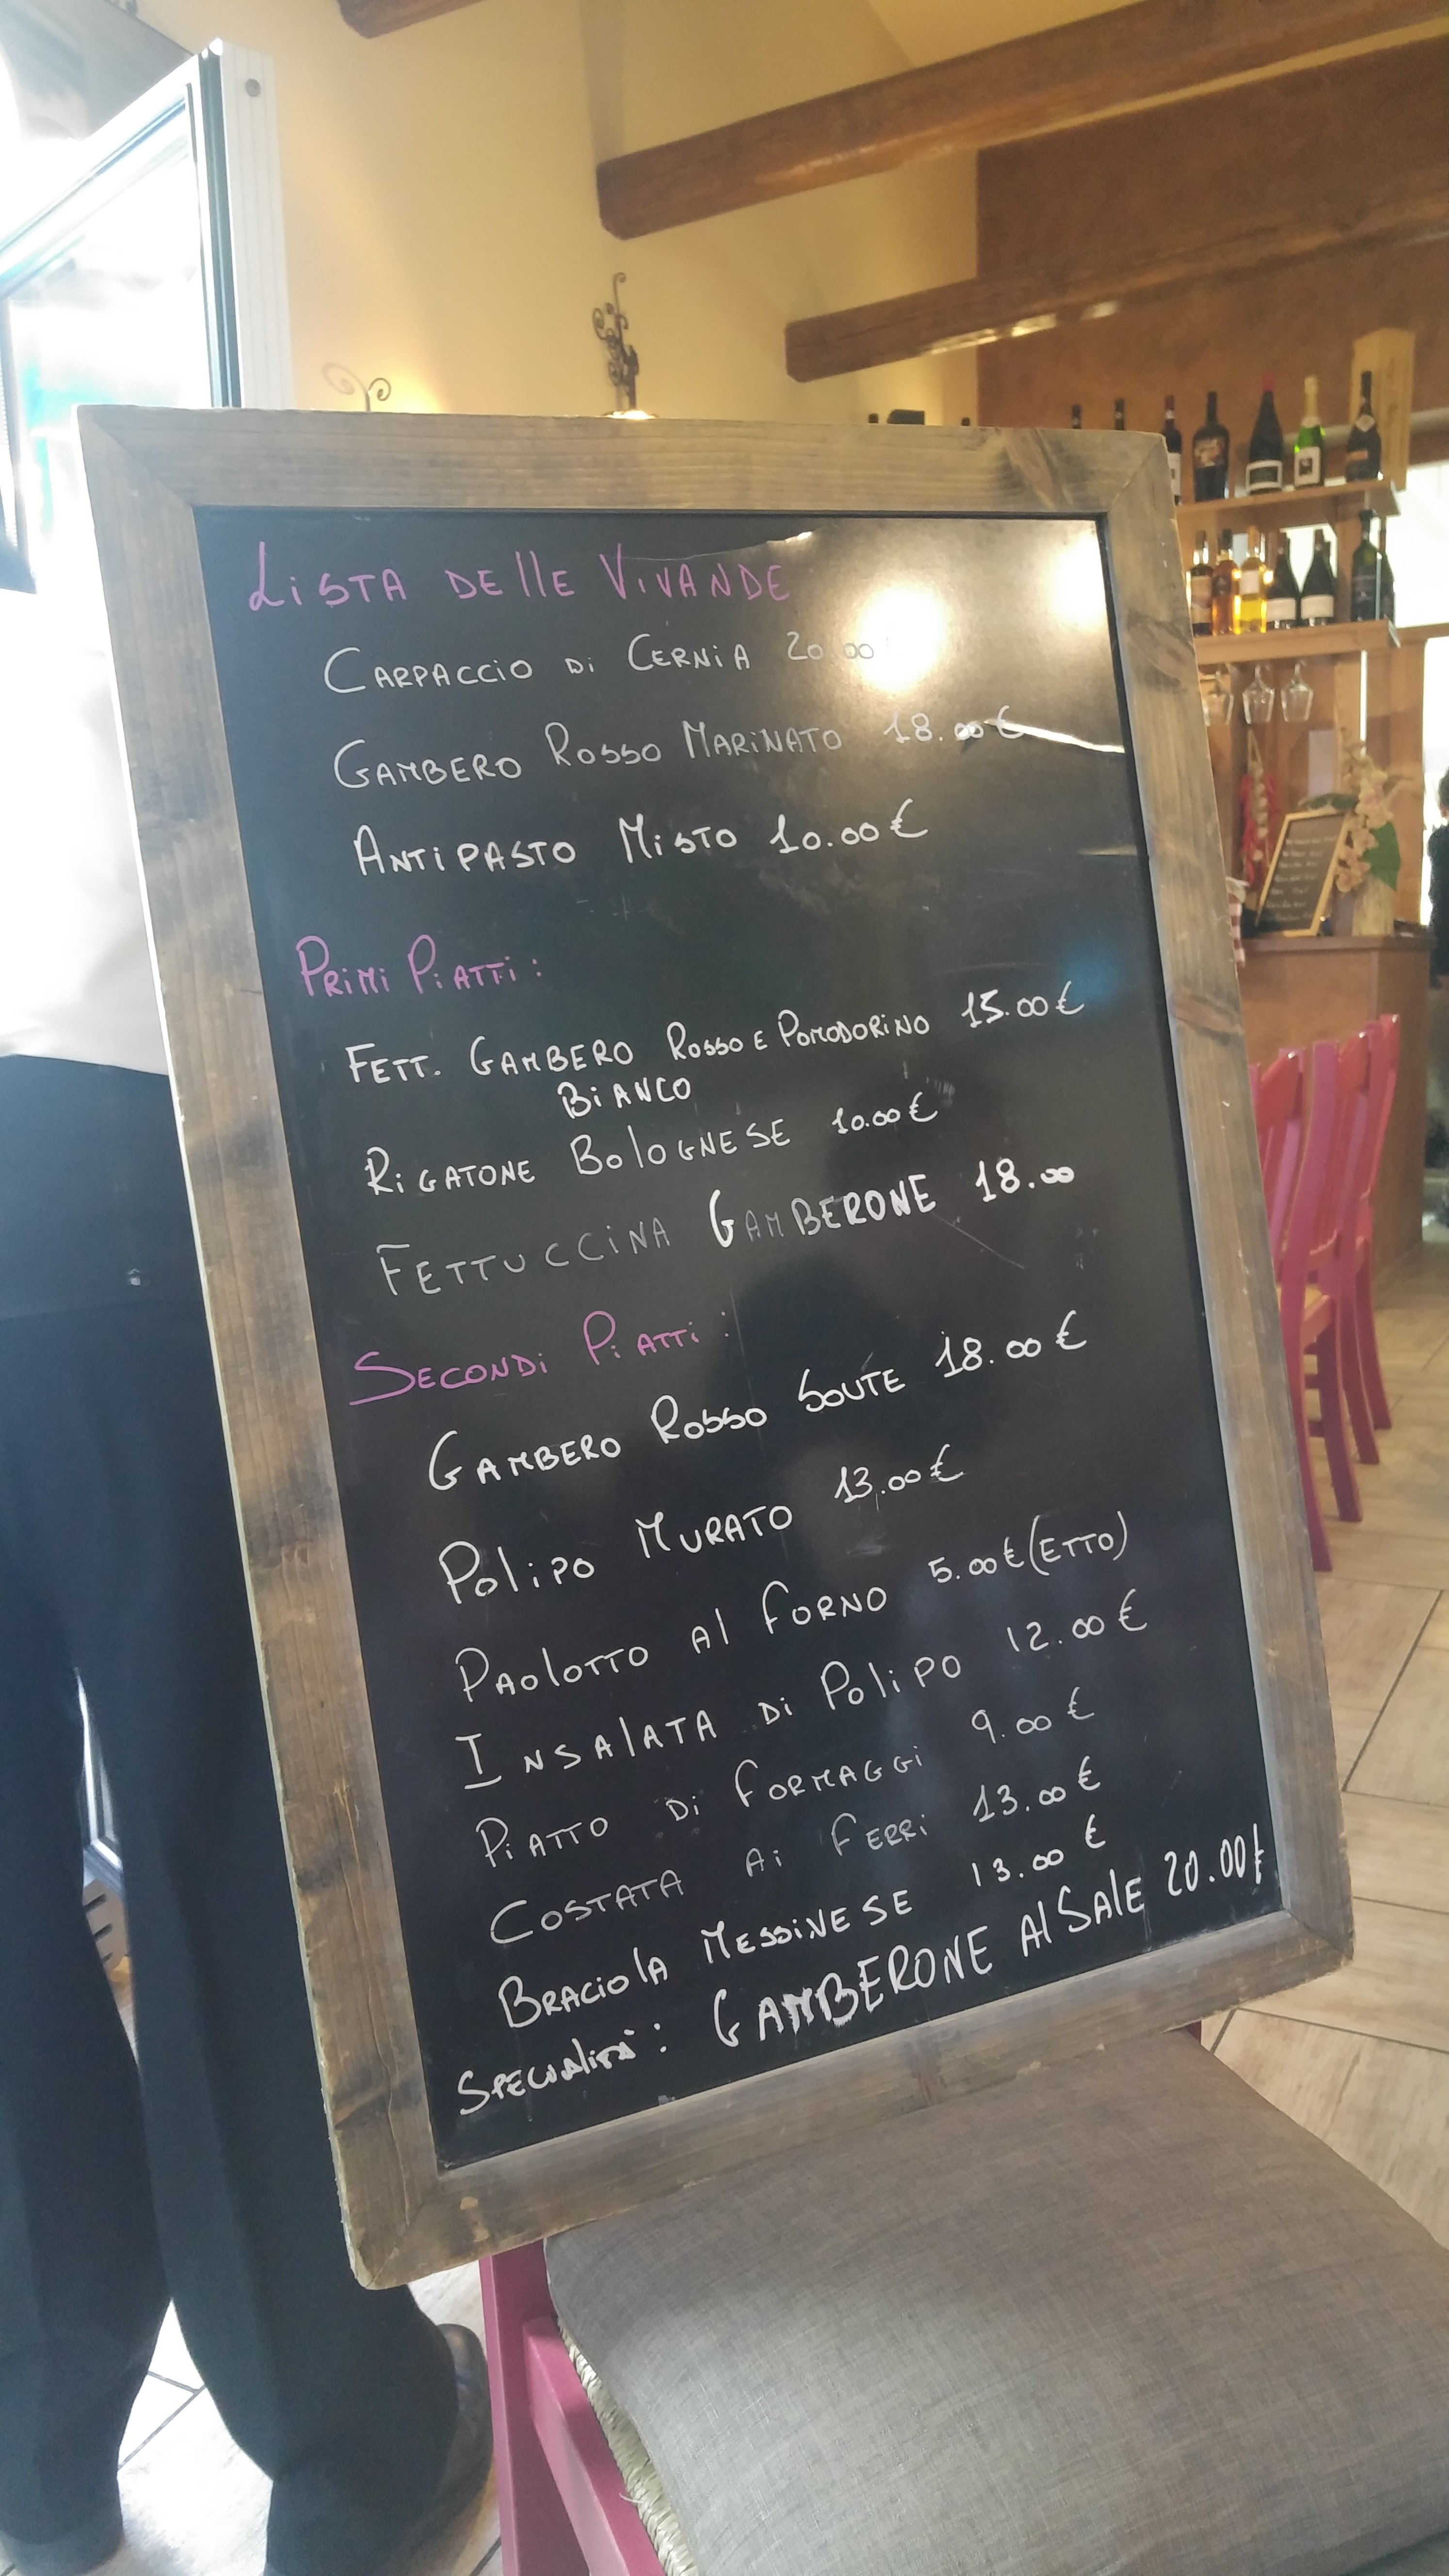 LISTA DELLE VIVANDE
CARPACCIO DI CERNIA 20.00
GAMBERO ROSSO MARINATO 18.00 €
ANTIPASTO MISTO 10.00 €
PRIMI PIATTI :
FETT. GAMBERO ROSSO E POMODORINO 15.00 €
BIANCO
RIGATONE BOLOGNESE 10.00 €
FETTUCCINA GAMBERONE 18.00
SECONDI PIATTI :
GAMBERO ROSSO SOUTE 18.00 €
POLIPO MURATO 13.00 €
PAOLOTTO AL FORNO 5.00 € (ETTO)
INSALATA DI POLIPO 12.00 €
PIATTO DI FORMAGGI 9.00 €
COSTATA AI FERRI 13.00 €
BRACIOLA MESSINESE 13.00 €
SPECIALITÀ : GAMBERONE AL SALE 20.00 €